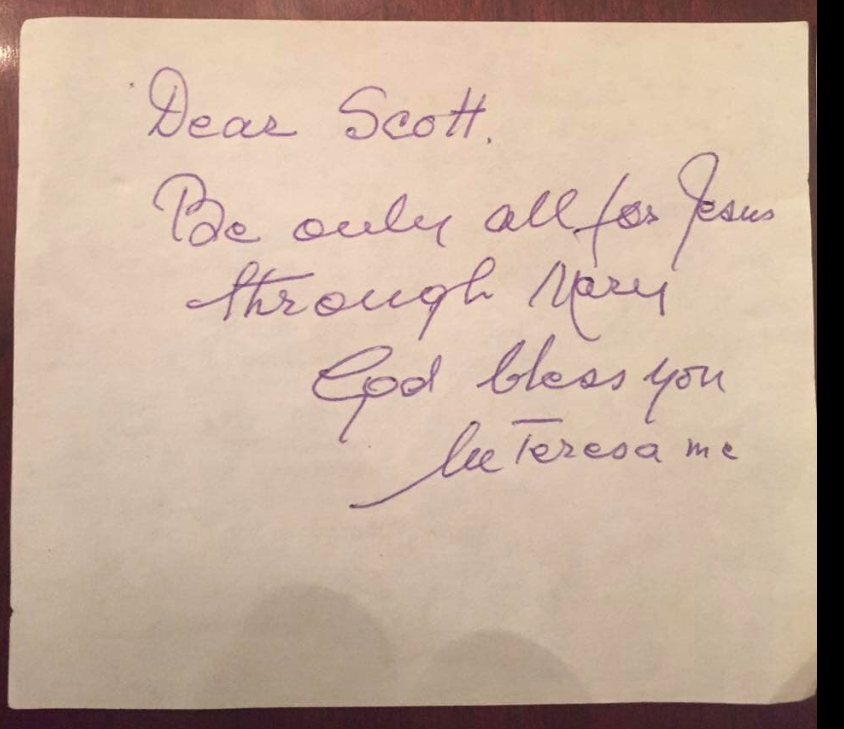 Dear Scott.
Be only all for Jesus
through Mary
God bless you
lee Teresa mc